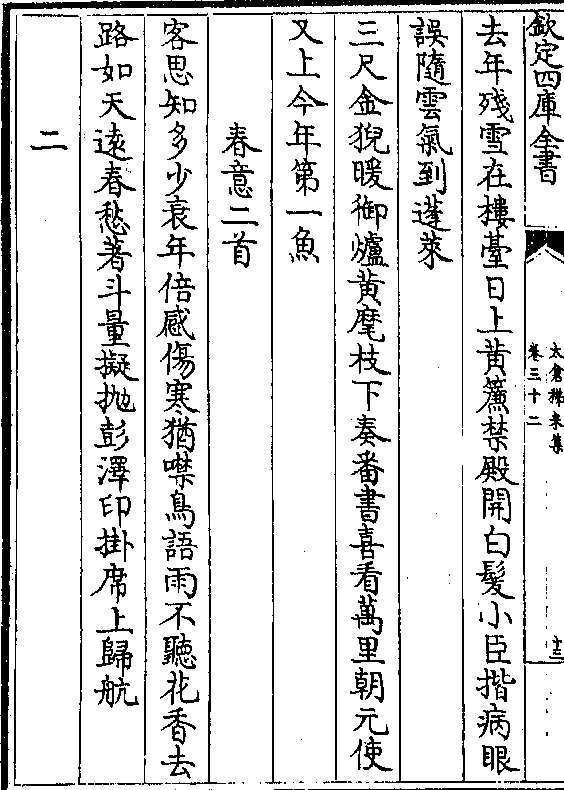 欽定四庫全書
太倉稊米集
卷三十二
十三
去年殘雪在樓臺日上黄簾禁殿開白髮小臣揩病眼
誤隨雲氣到蓬萊
三尺金猊暖御爐黄麾枝下奏番書喜看萬里朝元使
又上今年第一魚
春意二首
客思知多少衰年倍感傷寒猶噤鳥語雨不聽花香去
路如天遠春愁著斗量擬抛彭澤印掛席上歸航
二